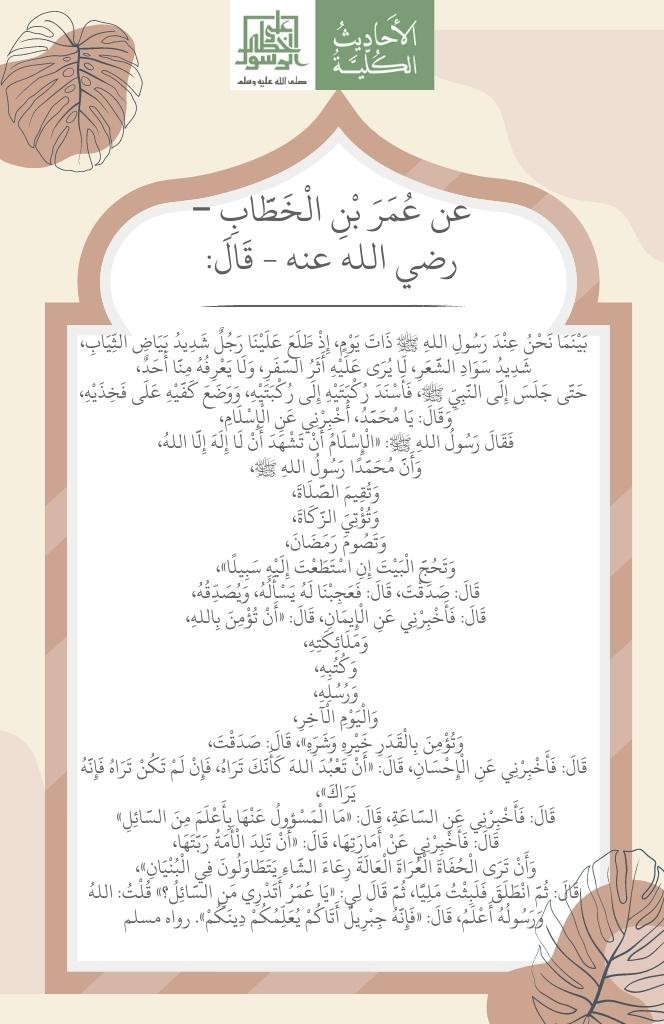 الأَحَادِيثُ
الكُلِّيَّةُ
على
خطى
الرسول
صلى الله عليه وسلم
عن عُمَرَ بْنِ الْخَطَّابِ –
رضي الله عنه - قَالَ:
بَيْنَمَا نَحْنُ عِنْدَ رَسُولِ اللهِ ﷺ ذَاتَ يَوْمٍ، إِذْ طَلَعَ عَلَيْنَا رَجُلٌ شَدِيدُ بَيَاضِ الثِّيَابِ،
شَدِيدُ سَوَادِ الشَّعَرِ، لَا يُرَى عَلَيْهِ أَثَرُ السَّفَرِ، وَلَا يَعْرِفُهُ مِنَّا أَحَدٌ،
حَتَّى جَلَسَ إِلَى النَّبِيِّ ﷺ، فَأَسْنَدَ رُكْبَتَيْهِ إِلَى رُكْبَتَيْهِ، وَوَضَعَ كَفَّيْهِ عَلَى فَخِذَيْهِ،
وَقَالَ: يَا مُحَمَّدُ، أَخْبِرْنِي عَنِ الْإِسْلَامِ،
فَقَالَ رَسُولُ اللهِ ﷺ: «الْإِسْلَامُ أَنْ تَشْهَدَ أَنْ لَا إِلَهَ إِلَّا اللهُ،
وَأَنَّ مُحَمَّدًا رَسُولُ اللهِ ﷺ،
وَتُقِيمَ الصَّلَاةَ،
وَتُؤْتِيَ الزَّكَاةَ،
وَتَصُومَ رَمَضَانَ،
وَتَحُجَّ الْبَيْتَ إِنِ اسْتَطَعْتَ إِلَيْهِ سَبِيلًا»،
قَالَ: صَدَقْتَ، قَالَ: فَعَجِبْنَا لَهُ يَسْأَلُهُ، وَيُصَدِّقُهُ،
قَالَ: فَأَخْبِرْنِي عَنِ الْإِيمَانِ، قَالَ: «أَنْ تُؤْمِنَ بِاللهِ،
وَمَلَائِكَتِهِ،
وَكُتُبِهِ،
وَرُسُلِهِ،
وَالْيَوْمِ الْآخِرِ،
وَتُؤْمِنَ بِالْقَدَرِ خَيْرِهِ وَشَرِّهِ»، قَالَ: صَدَقْتَ،
قَالَ: فَأَخْبِرْنِي عَنِ الْإِحْسَانِ، قَالَ: «أَنْ تَعْبُدَ اللهَ كَأَنَّكَ تَرَاهُ، فَإِنْ لَمْ تَكُنْ تَرَاهُ فَإِنَّهُ
يَرَاكَ»،
قَالَ: فَأَخْبِرْنِي عَنِ السَّاعَةِ، قَالَ: «مَا الْمَسْؤُولُ عَنْهَا بِأَعْلَمَ مِنَ السَّائِلِ»
قَالَ: فَأَخْبِرْنِي عَنْ أَمَارَتِهَا، قَالَ: «أَنْ تَلِدَ الْأَمَةُ رَبَّتَهَا،
وَأَنْ تَرَى الْحُفَاةَ الْعُرَاةَ الْعَالَةَ رِعَاءَ الشَّاءِ يَتَطَاوَلُونَ فِي الْبُنْيَانِ»،
قَالَ: ثُمَّ انْطَلَقَ فَلَبِثْتُ مَلِيًّا، ثُمَّ قَالَ لِي: «يَا عُمَرُ أَتَدْرِي مَنِ السَّائِلُ؟» قُلْتُ: اللهُ
وَرَسُولُهُ أَعْلَمُ، قَالَ: «فَإِنَّهُ جِبْرِيلُ أَتَاكُمْ يُعَلِّمُكُمْ دِينَكُمْ». رواه مسلم